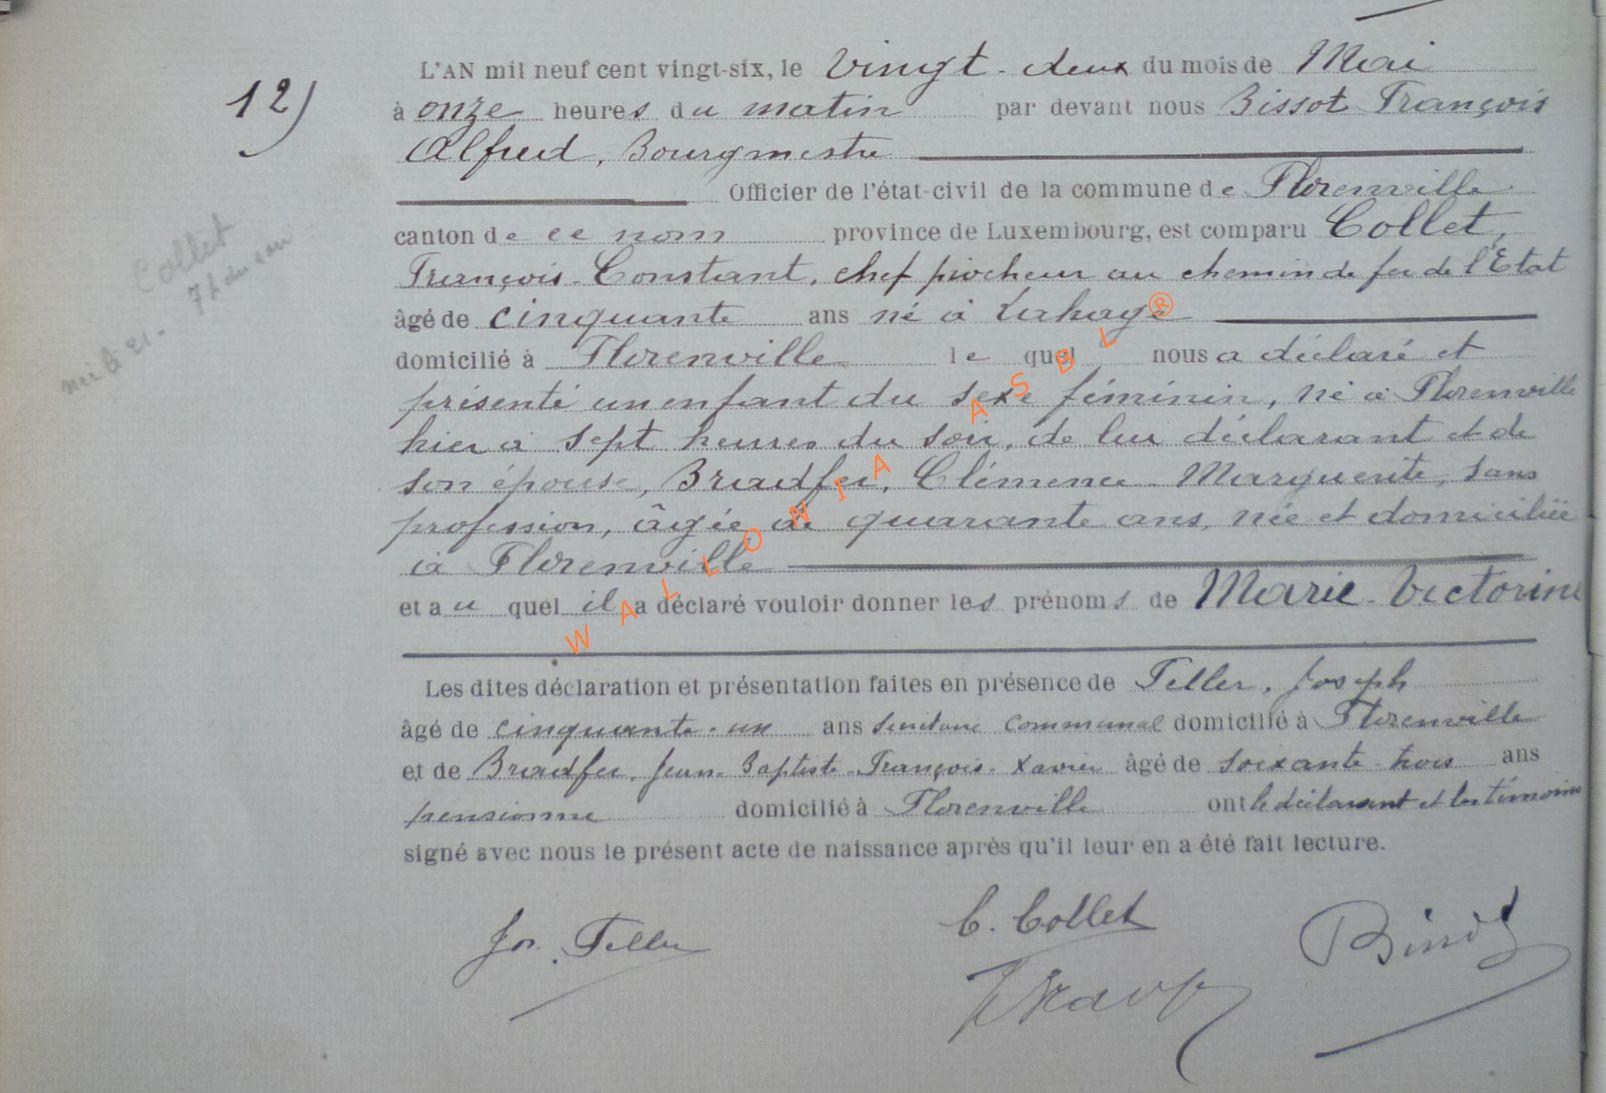 12)
L'AN mil neuf cent vingt-six, le vingt-deux du mois de Mai
à onze heures du matin par devant nous Bissot François
Alfred, Bourgmestre
Officier de l'état-civil de la commune de Florenville
canton de ce nom province de Luxembourg, est comparu Collet,
François-Constant, chef piocheur au chemin de fer de l'Etat
âgé de cinquante ans né à Lahage
domicilié à Florenville lequel nous a déclaré et
présenté un enfant du sexe féminin, né à Florenville
hier à sept heures du soir, de lui déclarant et de
son épouse, Bradfer, Clémence-Marguerite, sans
profession, âgée de quarante ans, née et domiciliée
à Florenville
et au quel il a déclaré vouloir donner les prénoms de Marie-Victorine
Les dites déclaration et présentation faites en présence de Feller, Joseph
âgé de cinquante-un ans secrétaire communal domicilié à Florenville
et de Bradfer, Jean-Baptiste-François-Xavier âgé de soixante-trois ans
pensionné domicilié à Florenville ont le déclarant et les témoins
signé avec nous le présent acte de naissance après qu'il leur en a été fait lecture.
Jos. Feller
C. Collet
Bissot
Collet
née le 21 -
7 h du soir
WALLONIA ASBL ®